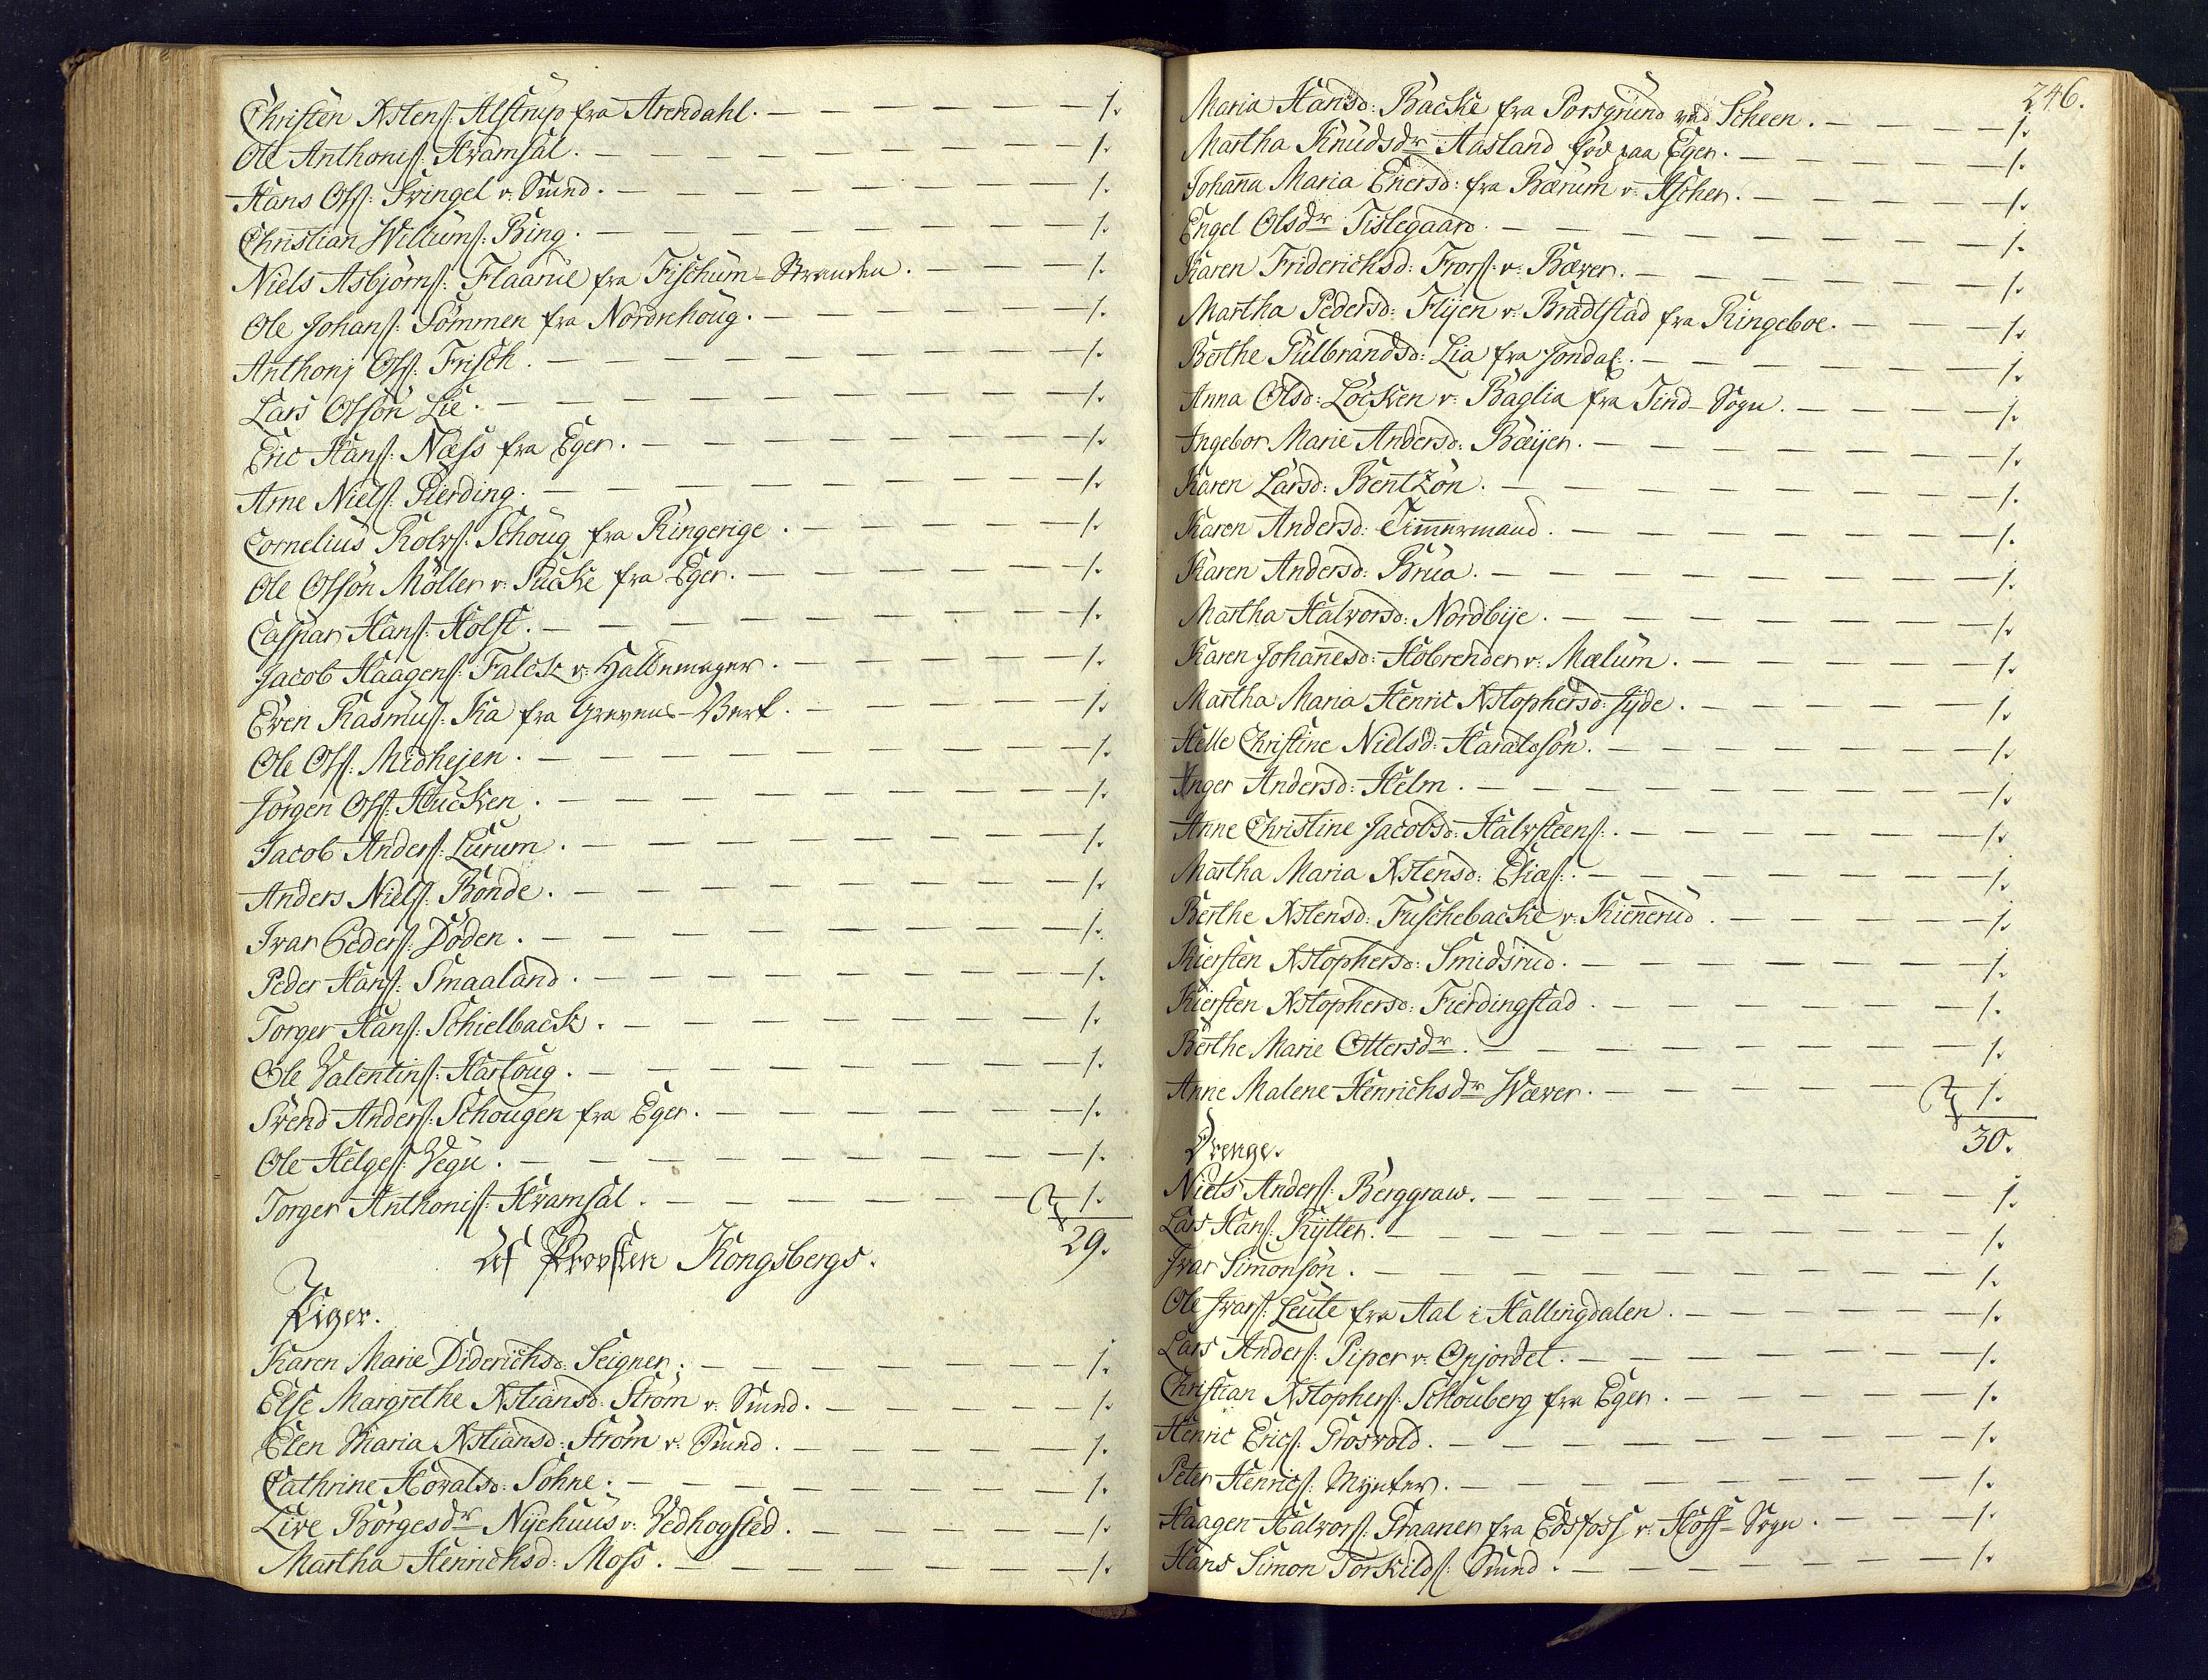 Christen Xstens: Alstrup fra Arendahl. — 1.
Ole Anthonis: Kramsal. — 1.
Hans Ols: Svingel v. Smed. — 1.
Christian Willums: Bing. — 1.
Niels Asbjörns: Flaarue fra Fischum-Stranden. — 1.
Ole Johans: Sömmen fra Nordrehoug. — 1.
Anthonj Ols: Frisch. — 1.
Lars Olsön Lie. — 1.
Eric Hans: Næss fra Eger. — 1.
Arne Niels: Gierding. — 1.
Cornelius Rolvs: Schoug fra Ringerige. — 1.
Ole Olsön Möller v. Sucke fra Eger. — 1.
Caspar Hans: Holst. — 1.
Jacob Haagens: Falck v. — 1.
Even Rasmus: Ka fra Grevens-Verk. — 1.
Ole Ols: Midhejen. — 1.
Jörgen Ols: Hucken. — 1.
Jacob Anders: Lurum. — 1.
Anders Niels: Bonde. — 1.
Ivar Peders: Döden. — 1.
Peder Hans: Smaaland. — 1.
Torger Hans: Schielback. — 1.
Ole Valentins: Hartoug. — 1.
Svend Anders: Schougen fra Eger. — 1.
Ole Helges: Vegu. — 1.
Torger Anthonis: Kramsal. — 1.
29.
Af Provsten Kongsbergs.
Piger.
Karen Marie Diderichsd: Seigner. — 1.
Else Margrethe Xstiansd: Ström v. Smed. — 1.
Elen Maria Xstiansd: Ström v. Smed. — 1.
Cathrine Hovalsd: Sohne. — 1.
Live Börgesdr Nyehuus v. Vedhogsted. — 1.
Martha Henrichsd: Moss. — 1.
246.
Maria Hansd: Backe fra Porsgrund ved Scheen. — 1.
Martha Knudsdr Aasland föd paa Eger. — 1.
Johanna Maria Enersd: fra Bærum v. Ascher. — 1.
Engel Olsdr Tislegaard. — 1.
Karen Friderichsd: Frors: v. Bæver. — 1.
Martha Pedersd: Flyen v. Bradtstad fra Ringeboe. — 1.
Berthe Gulbrandsd: Lia fra Jondal. — 1.
Anna Olsd: Löcken v. Baglia fra Tind-Sogn. — 1.
Ingebor Marie Andersd: Bæijer. — 1.
Karen Larsd: Bentzon. — 1.
Karen Andersd: Timmermand. — 1.
Karen Andersd: Brua. — 1.
Martha Halvorsd: Nordbije. — 1.
Karen Johannesd: Hobrender v. Mælum. — 1.
Martha Maria Henric Xstophersd: Jyde. — 1.
Helle Christine Nielsd: Haraldsön. — 1.
Inger Andersd: Helm. — 1.
Anne Christine Jacobsd: Halvsteens: — 1.
Martha Maria Xstensd: Elias: — 1.
Berthe Xstensd: Fuschebacke v. Kiennerud. — 1.
Kiersten Xstophersd: Smidsrud. — 1.
Kiersten Xstophersd: Fierdingstad. — 1.
Berthe Marie Ottersdr. — 1.
Anne Malene Henrichsdr Wæver. — 1.
30.
Drenge.
Niels Anders: Berggraw. — 1.
Lars Hans: Rytter. — 1.
Ivar Simonsön. — 1.
Ole Ivars: Leute fra Aal i Hallingdalen. — 1.
Lars Anders: Piper v. Opjordet. — 1.
Christian Xstophers: Schouberg fra Eger. — 1.
Henric Erics: Grosvold. — 1.
Peter Henrics: Mynter. — 1.
Haagen Halvors: Graaner fra Edsfoss v. Hoff-Sogn. — 1.
Hans Simon Torkilds: Smed. — 1.